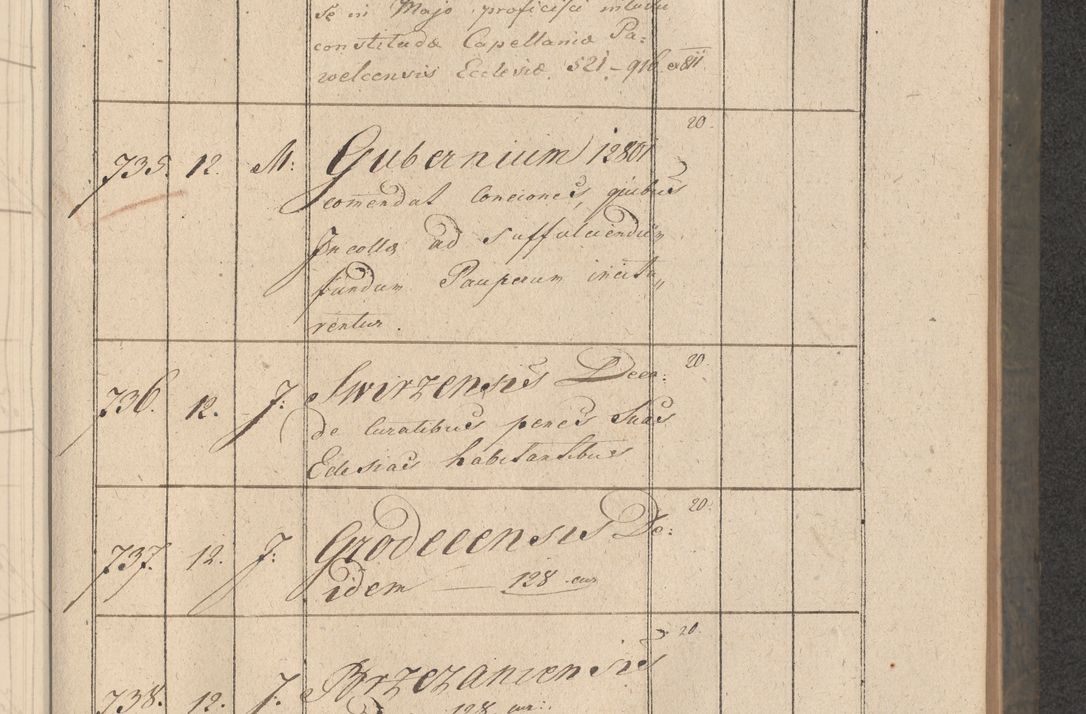 se in Majo proficisci
constitudæ Capellaniæ Pa:
welcensis Ecclesiæ. 521.
20.
735. 12. M: Gubernium 12801
comendat Conciones, quibus
Incollæ ad suffulciendum
fundum Pauperum incita„
rentur.
20.
736. 12. J: Swirzensis Deca:
de Curatibus penes suas
Eclesias habitantibus
20.
737. 12. J: Grodecensis De:
idem — 128
20.
738. 12. J. Brzezaniensis
128